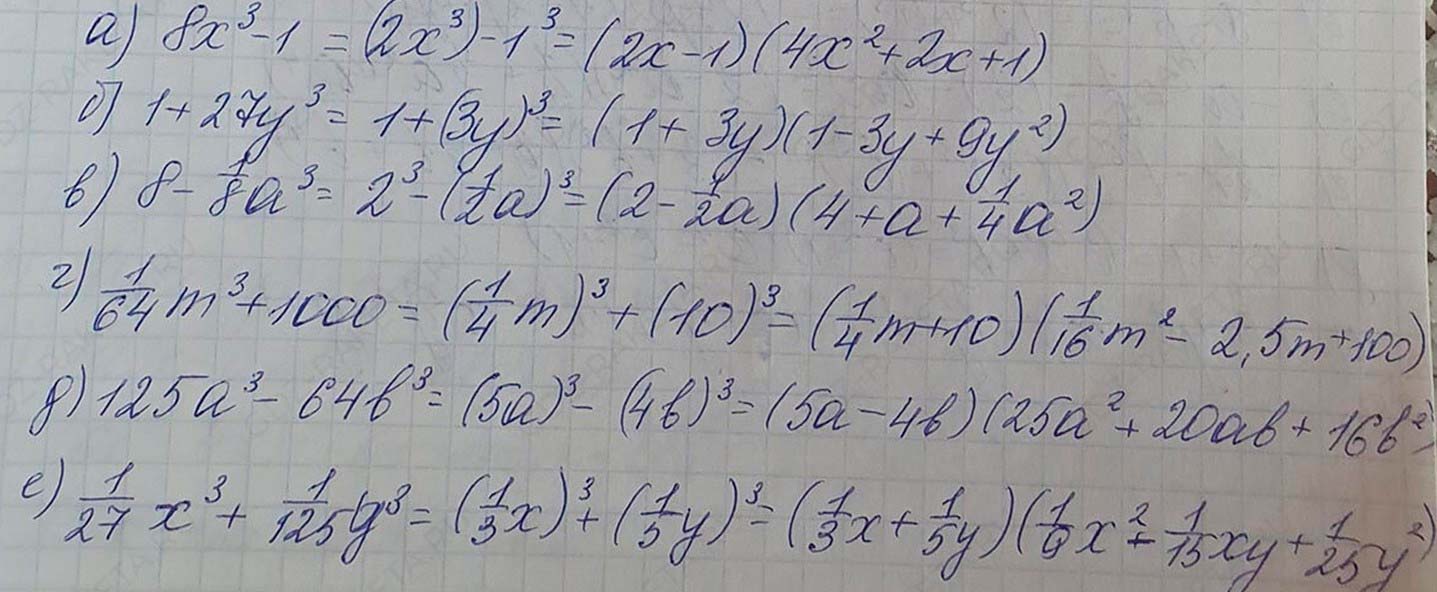 а) 8x³-1 = (2x³)-1³ = (2x-1)(4x²+2x+1)
б) 1+27y³ = 1+(3y)³ = (1+3y)(1-3y+9y²)
в) 8-1/8a³ = 2³-(1/2a)³ = (2-1/2a)(4+a+1/4a²)
г) 1/64m³+1000 = (1/4m)³+(10)³ = (1/4m+10)(1/16m²-2,5m+100)
д) 125a³-64b³ = (5a)³-(4b)³ = (5a-4b)(25a²+20ab+16b²)
е) 1/27x³+1/125y³ = (1/3x)³+(1/5y)³ = (1/3x+1/5y)(1/9x²-1/15xy+1/25y²)